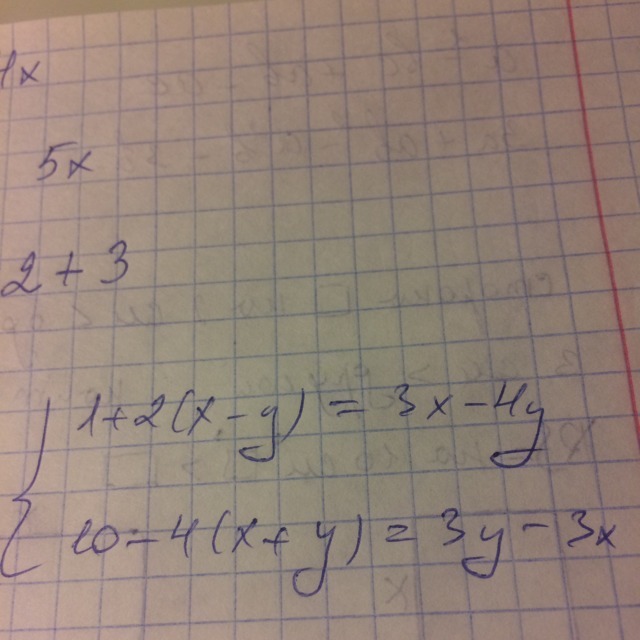 1x
5x
2 + 3
{ 1+2(x-y) = 3x-4y
10-4(x+y) = 3y-3x